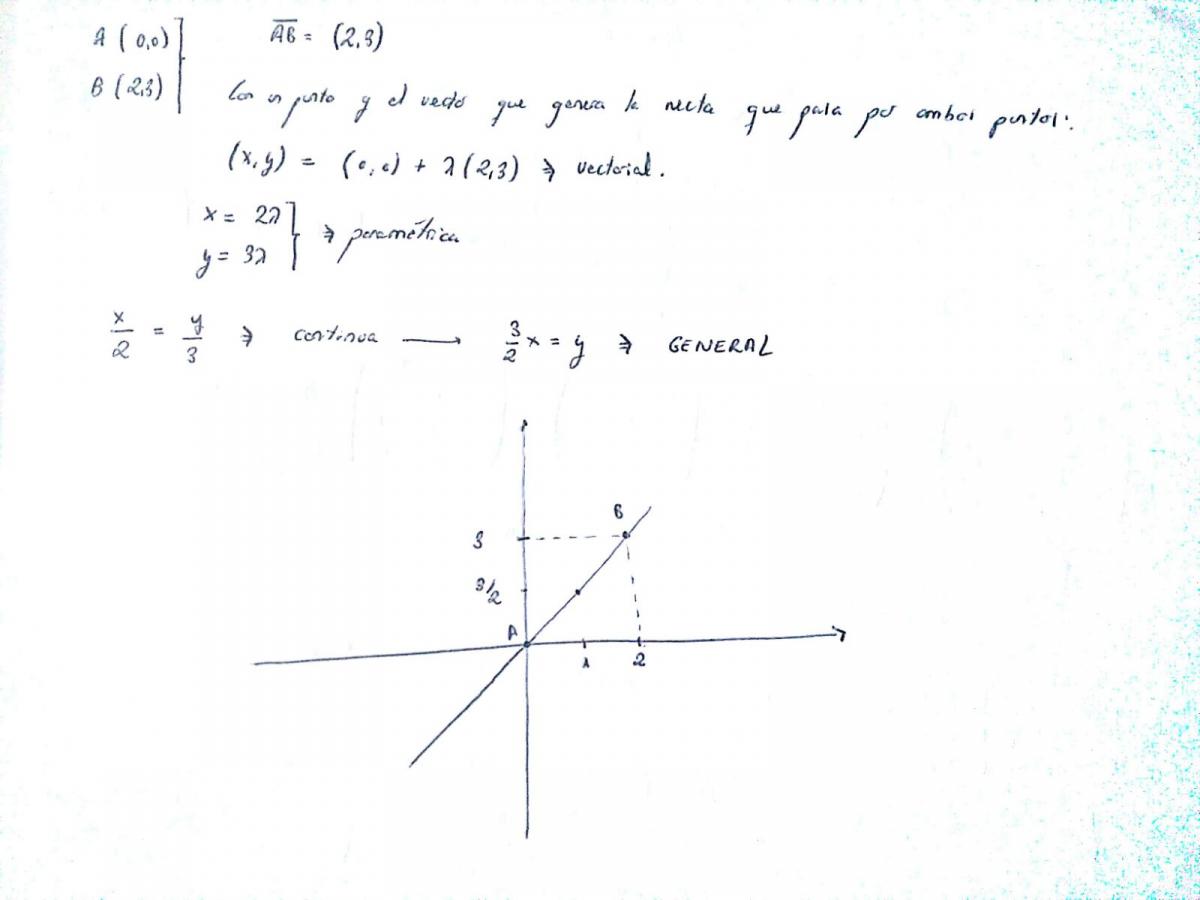 A (0,0)
AB = (2,3)
B (2,3)
Con un punto y el vector que genera la recta que pasa por ambos puntos:
(x,y) = (0,0) + λ(2,3) ⇒ vectorial.
x = 2λ
y = 3λ
⇒ paramétrica
x/2 = y/3 ⇒ continua → 3/2 x = y ⇒ GENERAL
B
3
3/2
A
1
2